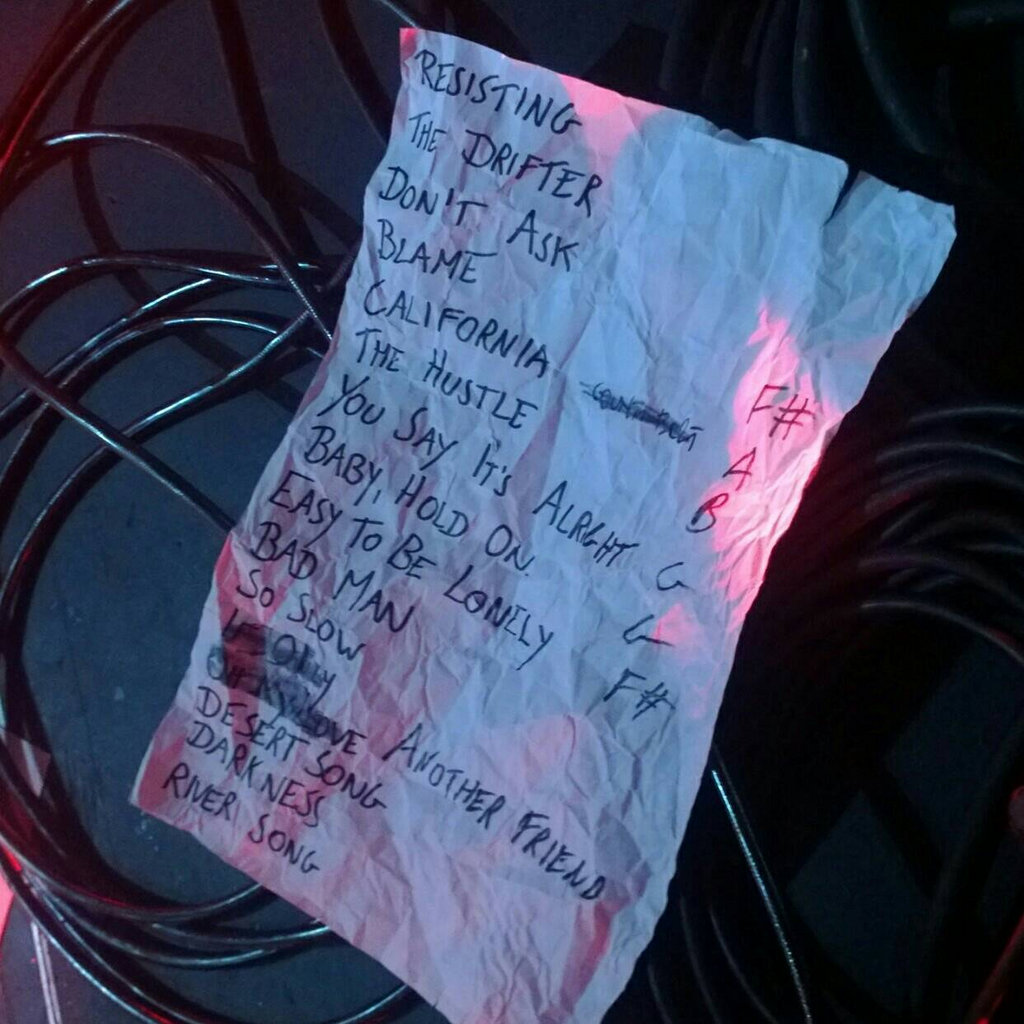 RESISTING
THE DRIFTER
DON'T ASK
BLAME
CALIFORNIA
THE HUSTLE F#
YOU SAY IT'S ALRIGHT A
BABY, HOLD ON. B
EASY TO BE LONELY G
BAD MAN G
SO SLOW F#
ANOTHER FRIEND
DESERT SONG
DARKNESS
RIVER SONG